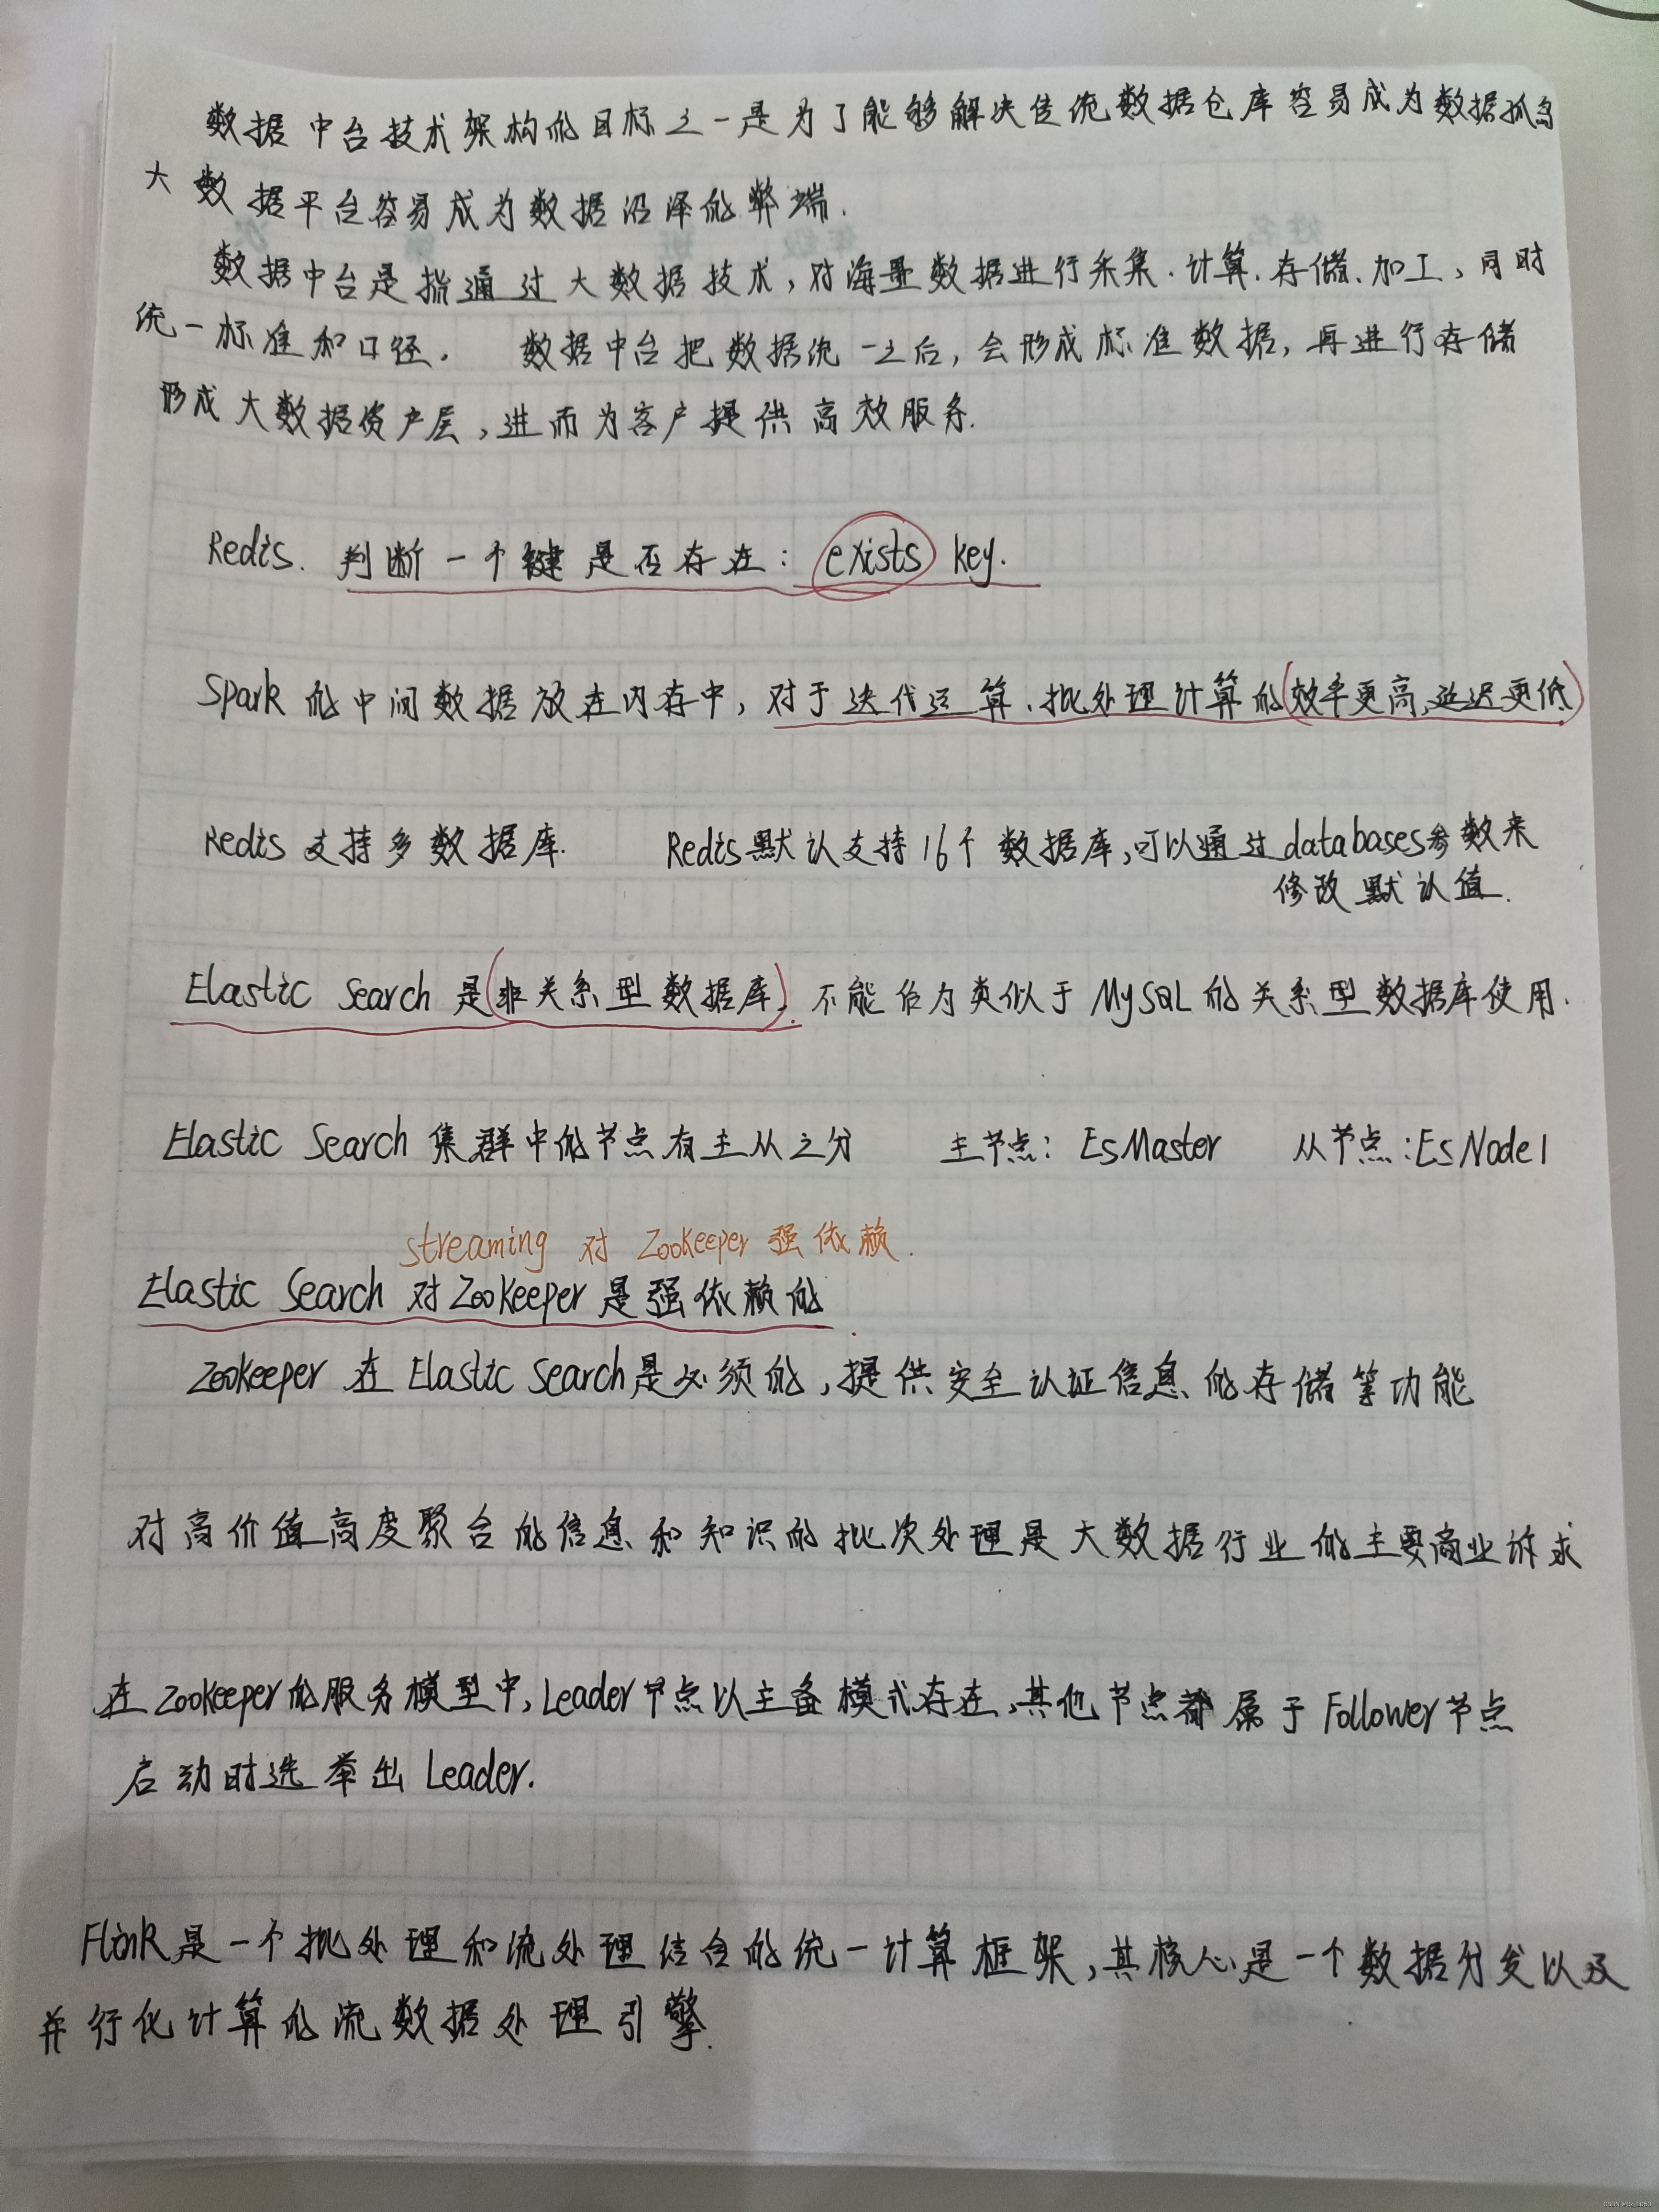 数据中台技术架构的目标之一是为了能够解决传统数据仓库容易成为数据孤岛
大数据平台容易成为数据沼泽的弊端.
数据中台是指通过大数据技术,对海量数据进行采集.计算.存储.加工,同时
统一标准和口径. 数据中台把数据统一之后,会形成标准数据,再进行存储
形成大数据资产层,进而为客户提供高效服务.
Redis. 判断一个键是否存在: exists key.
Spark的中间数据放在内存中,对于迭代运算.批处理计算的(效率更高,延迟更低)
Redis支持多数据库. Redis默认支持16个数据库,可以通过databases参数来
修改默认值.
Elastic Search 是(非关系型数据库). 不能作为类似于MySQL的关系型数据库使用.
Elastic Search 集群中的节点有主从之分 主节点: EsMaster 从节点:EsNode1
streaming 对 Zookeeper 强依赖.
Elastic Search 对 Zookeeper 是强依赖的.
Zookeeper 在 Elastic Search是必须的,提供安全认证信息的存储等功能
对高价值高度聚合的信息和知识的批次处理是大数据行业的主要商业诉求
在Zookeeper的服务模型中,Leader节点以主备模式存在,其他节点都属于Follower节点
启动时选举出 Leader.
Flink是一个批处理和流处理结合的统一计算框架,其核心是一个数据分发以及
并行化计算的流数据处理引擎.